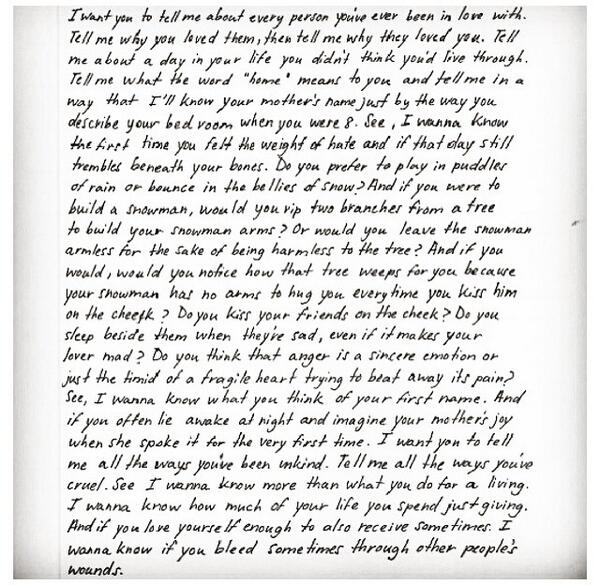 I want you to tell me about every person you've ever been in love with.
Tell me why you loved them, then tell me why they loved you. Tell
me about a day in your life you didn't think you'd live through.
Tell me what the word "home" means to you and tell me in a
way that I'll know your mother's name just by the way you
describe your bed room when you were 8. See, I wanna know
the first time you felt the weight of hate and if that day still
trembles beneath your bones. Do you prefer to play in puddles
of rain or bounce in the bellies of snow? And if you were to
build a snowman, would you rip two branches from a tree
to build your snowman arms? Or would you leave the snowman
armless for the sake of being harmless to the tree? And if you
would, would you notice how that tree weeps for you because
your snowman has no arms to hug you everytime you kiss him
on the cheek? Do you kiss your friends on the cheek? Do you
sleep beside them when they're sad, even if it makes your
lover mad? Do you think that anger is a sincere emotion or
just the timid of a fragile heart trying to beat away its pain?
See, I wanna know what you think of your first name. And
if you often lie awake at night and imagine your mother's joy
when she spoke it for the very first time. I want you to tell
me all the ways you've been unkind. Tell me all the ways you've
cruel. See I wanna know more than what you do for a living.
I wanna know how much of your life you spend just giving.
And if you love yourself enough to also receive sometimes. I
wanna know if you bleed sometimes through other people's
wounds.